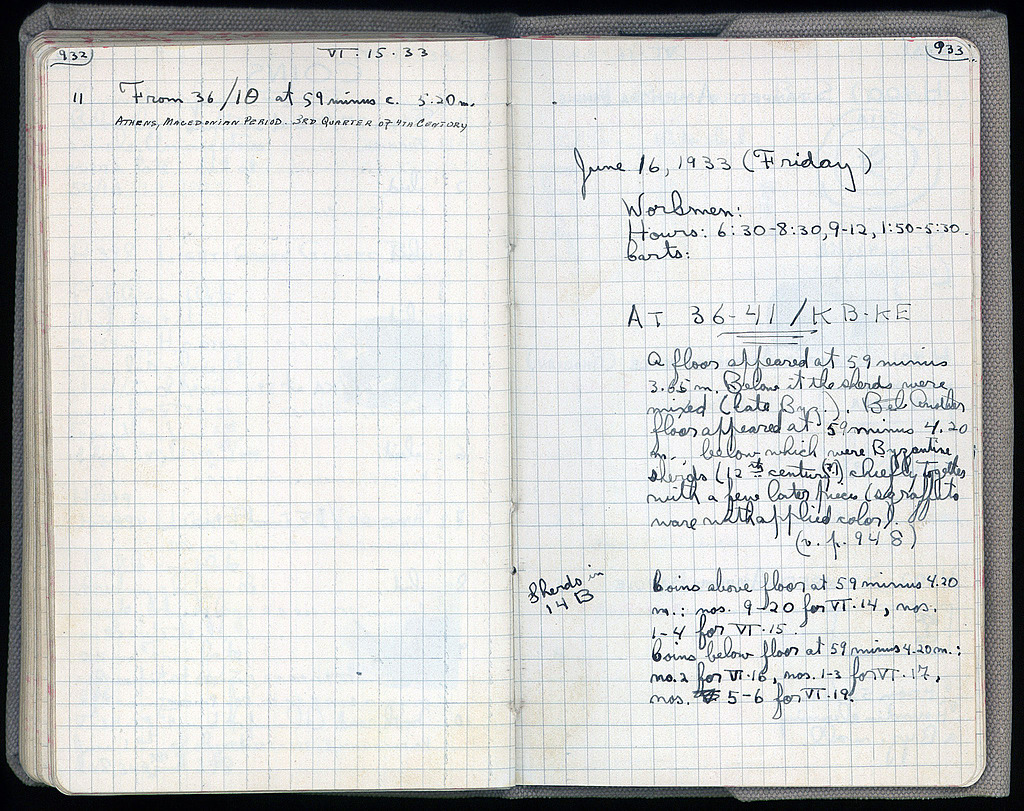 932
VI · 15 · 33
11 From 36/1Θ at 59 minus c. 5.20 m.
ATHENS, MACEDONIAN PERIOD. 3RD QUARTER OF 4TH CENTURY
933
June 16, 1933 (Friday)
Workmen:
Hours: 6:30-8:30, 9-12, 1:50-5:30.
Carts:
AT 36-41/KB-KE
A floor appeared at 59 minus
3.65 m. Below it the sherds were
mixed (late Byz.). Bel Another
floor appeared at 59 minus 4.20
m., below which were Byzantine
sherds (12th century(?)) chiefly together
with a few later pieces (sgraffito
ware with applied color).
(v. p. 948)
Sherds in
14 B
Coins above floor at 59 minus 4.20
m.: nos. 9-20 for VI·14, nos.
1-4 for VI·15.
Coins below floor at 59 minus 4.20 m.:
no. 2 for VI·16, nos. 1-3 for VI·17,
nos. 5-6 for VI·19.